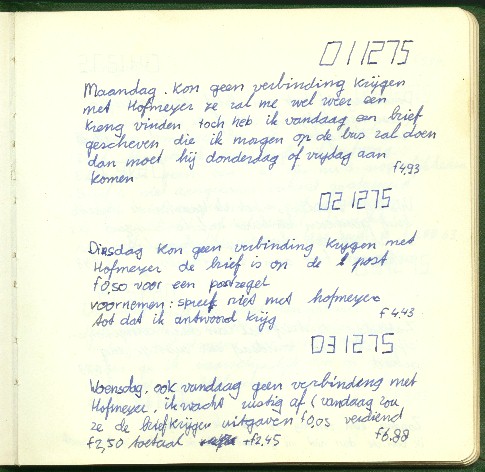 011275
Maandag. Kon geen verbinding krijgen
met Hofmeyer ze zal me wel weer een
kreng vinden toch heb ik vandaag een brief
gescheven die ik morgen op de bus zal doen
dan moet hij donderdag of vrijdag aan
komen f4,93
021275
Dinsdag Kon geen verbinding krijgen met
Hofmeyer de brief is op de post
f0,50 voor een postzegel
voornemen: spreek niet met hofmeyer
tot dat ik antwoord krijg f4.43
031275
Woensdag, ook vandaag geen verbinding met
Hofmeyer, ik wacht rustig af (vandaag zou
ze de brief krijgen uitgaven f0,05 verdiend
f2,50 totaal +f2,45 f6.88